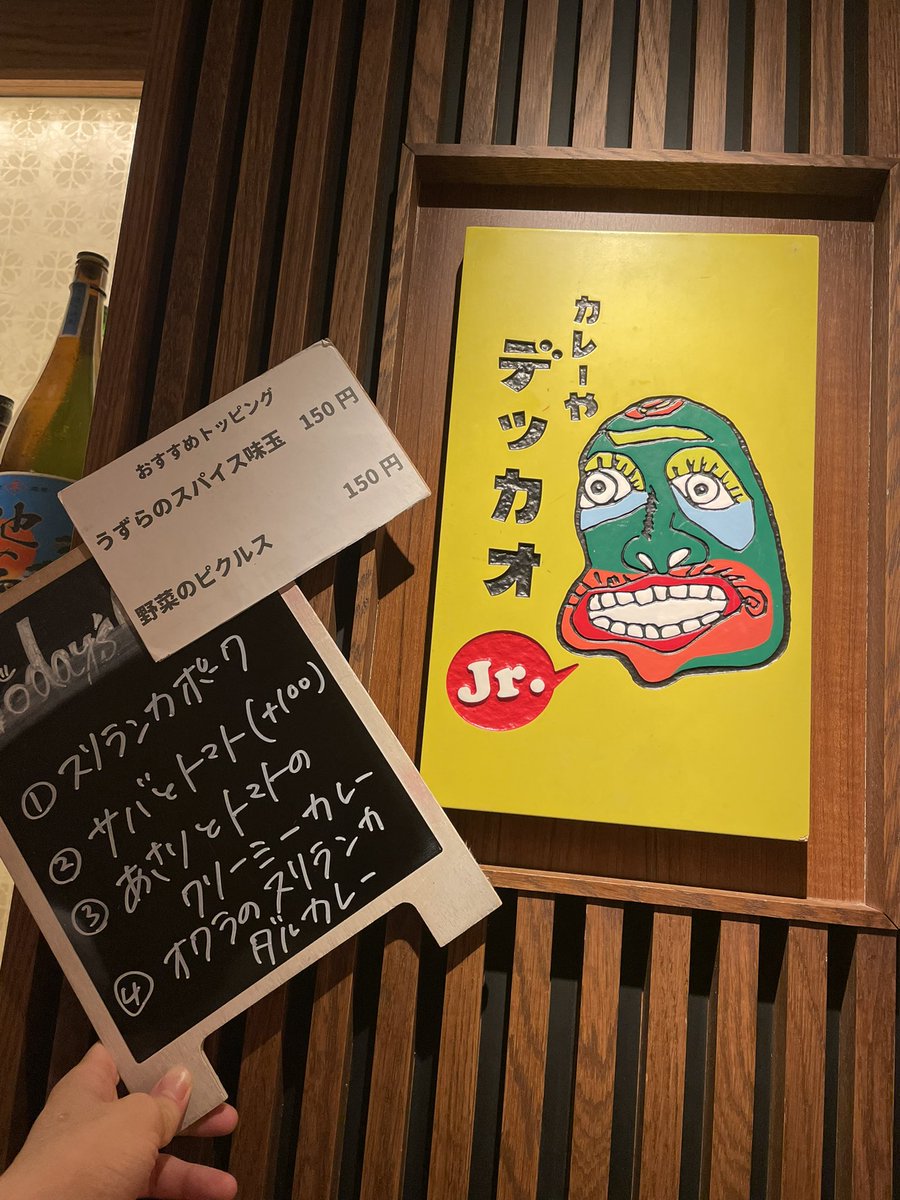 カレーや
デッカオ
Jr.
おすすめトッピング
うずらのスパイス味玉 150円
野菜のピクルス 150円
Today's
①スリランカポーク
②サバとトマト(+100)
③あさりとトマトの
クリーミーカレー
④オクラのスリランカ
ダルカレー